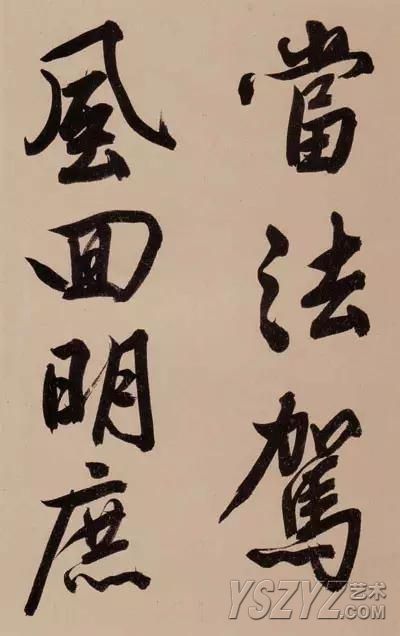 當法駕
風回明庶
YSZYZ艺术
.COM